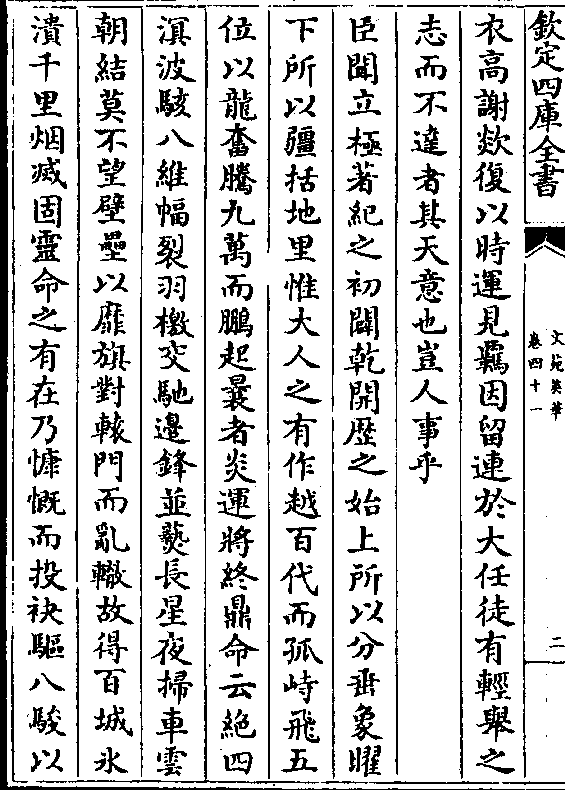 欽定四庫全書
文苑英華
卷四十一
二
衣高謝欻復以時運見羈因留連於大任徒有輕舉之
志而不達者其天意也豈人事乎
臣聞立極著紀之初闢乾開歴之始上所以分垂象曜
下所以疆括地里惟大人之有作越百代而孤峙飛五
位以龍奮騰九萬而鵬起曩者炎運將終鼎命云絶四
溟波駭八維幅裂羽檄交馳邉鋒並爇長星夜掃車雲
朝結莫不望壁壘以靡旗對轅門而亂轍故得百城氷
潰千里烟滅固靈命之有在乃慷慨而投袂驅八駿以